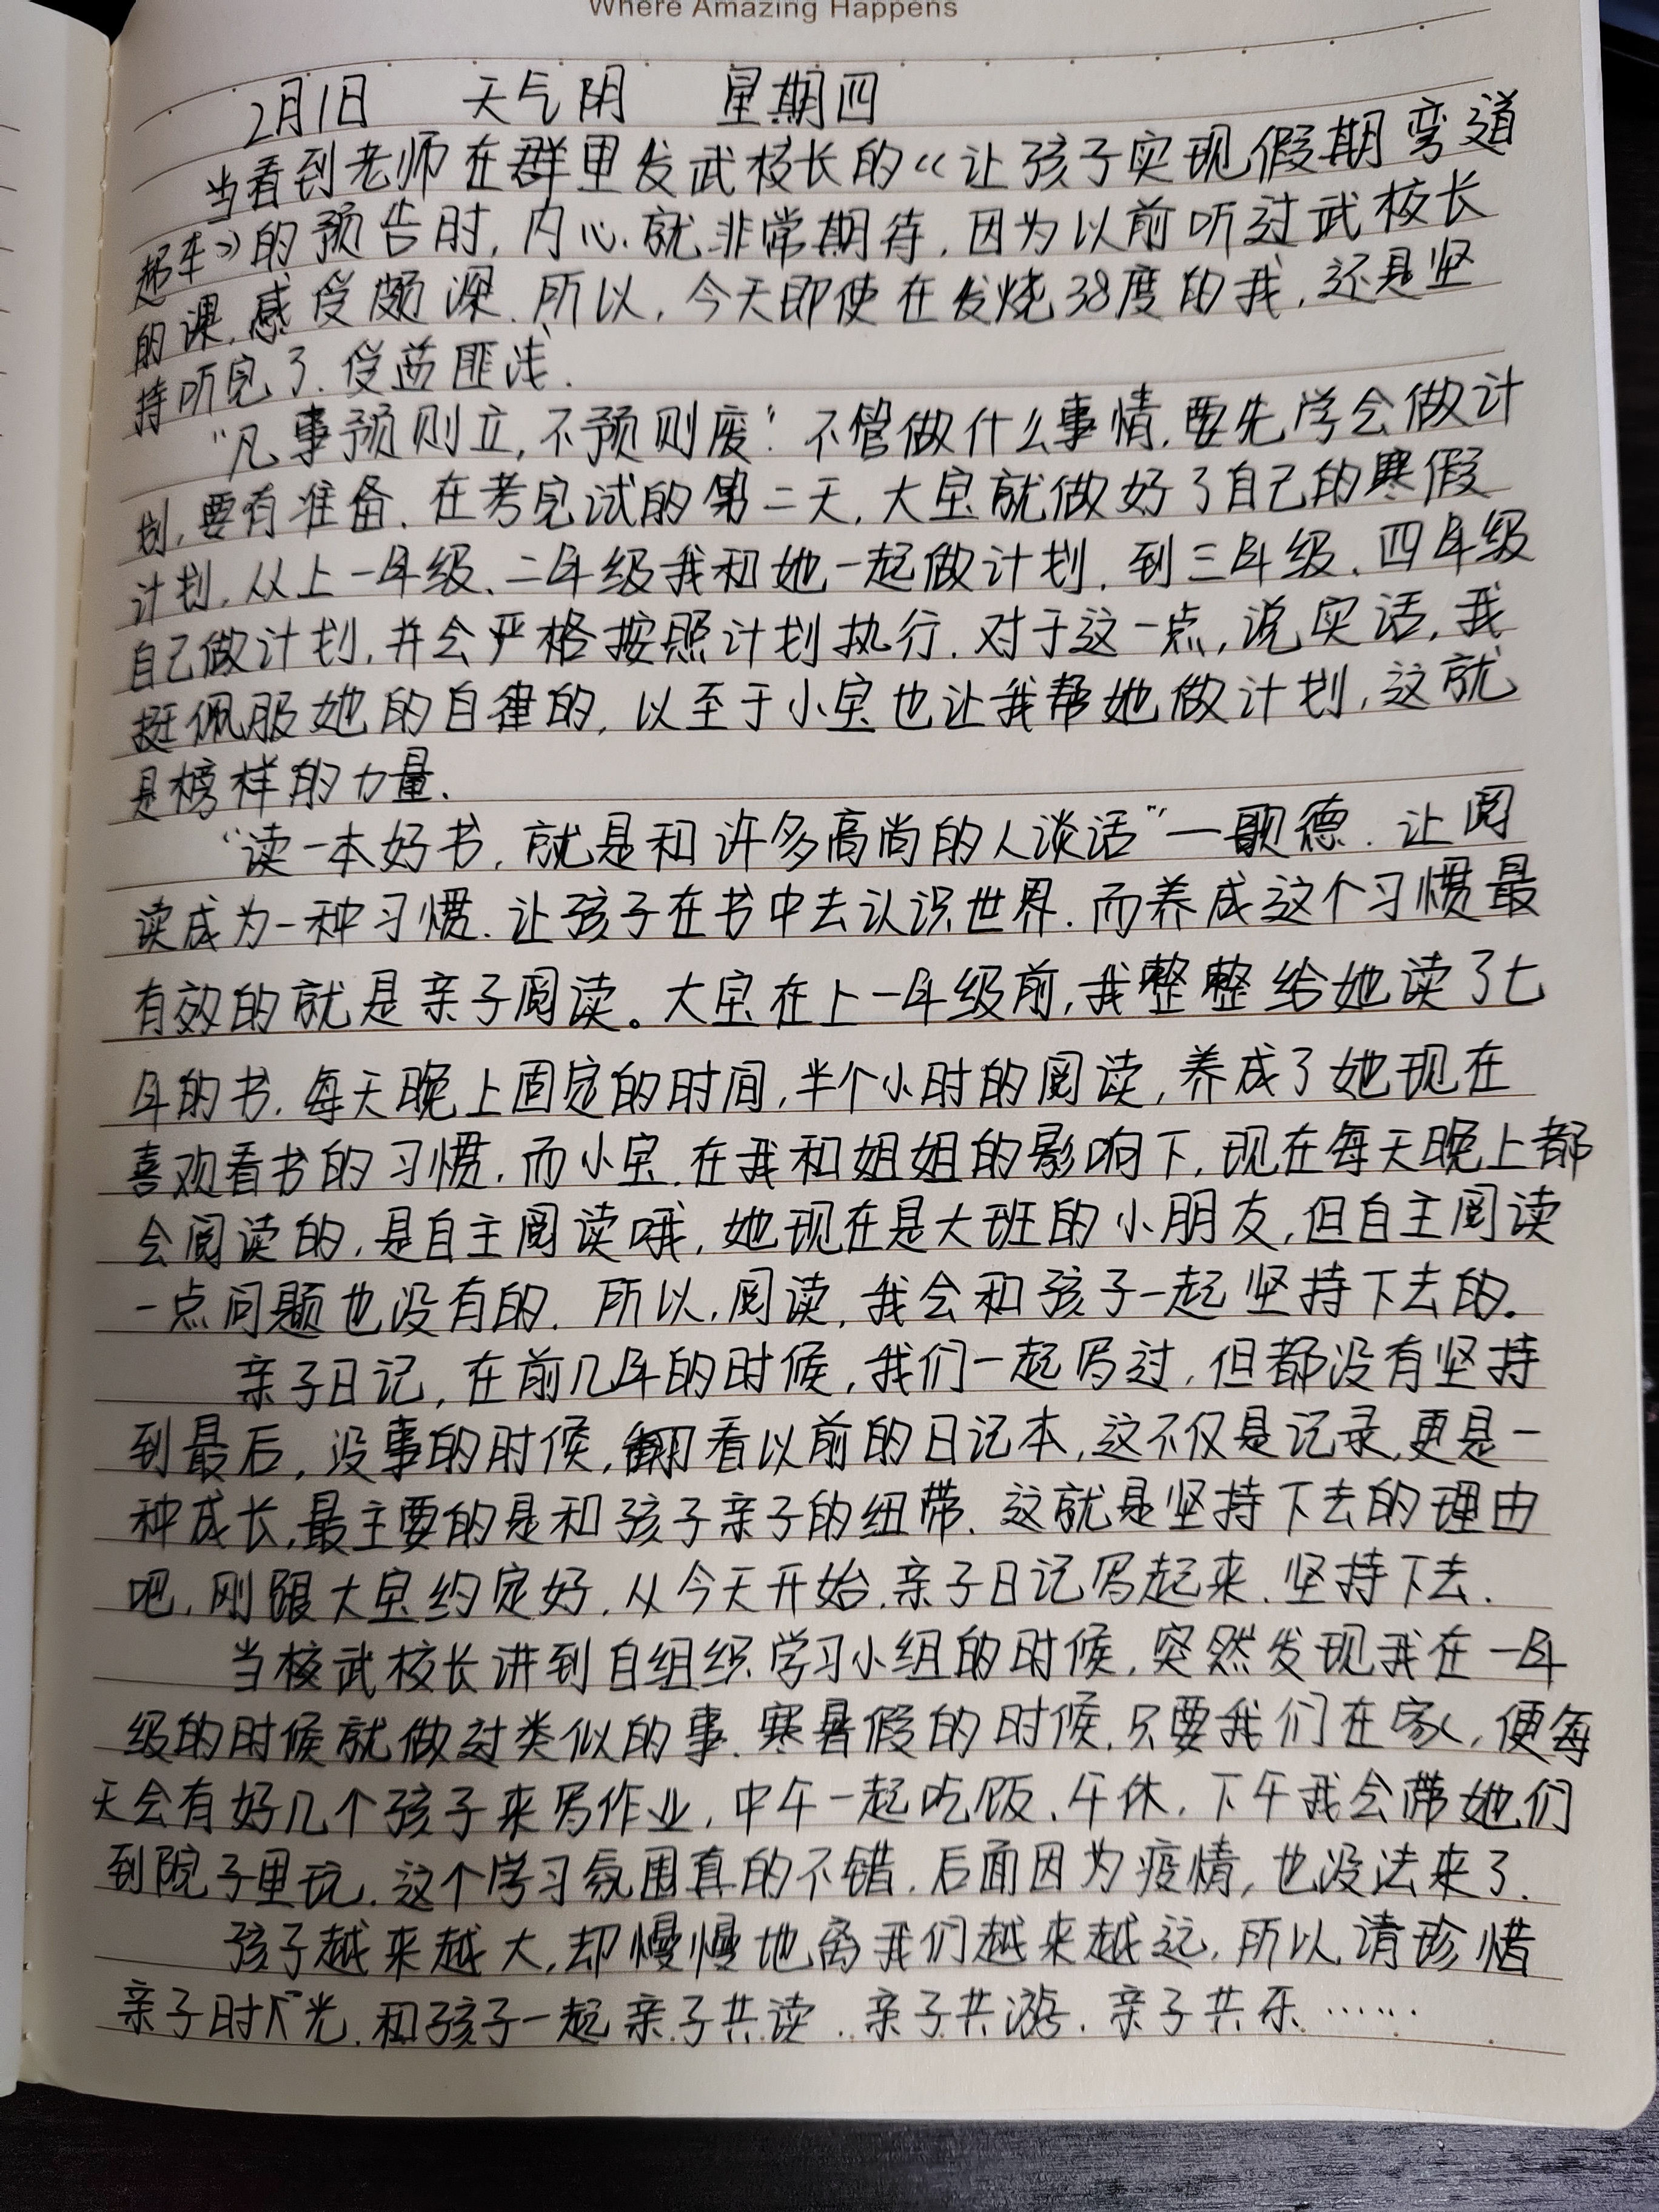 Where Amazing Happens
2月1日 天气阴 星期四
当看到老师在群里发武校长的《让孩子实现假期弯道
超车》的预告时,内心就非常期待,因为以前听过武校长
的课,感受颇深.所以,今天即使在发烧38度的我,还是坚
持听完了.受益匪浅.
“凡事预则立,不预则废”不管做什么事情,要先学会做计
划,要有准备.在考完试的第二天,大宝就做好了自己的寒假
计划.从上一年级、二年级我和她一起做计划,到三年级、四年级
自己做计划,并会严格按照计划执行.对于这一点,说实话,我
挺佩服她的自律的,以至于小宝也让我帮她做计划,这就
是榜样的力量.
“读一本好书,就是和许多高尚的人谈话”一歌德.让阅
读成为一种习惯.让孩子在书中去认识世界.而养成这个习惯最
有效的就是亲子阅读。大宝在上一年级前,我整整给她读了七
年的书.每天晚上固定的时间,半个小时的阅读,养成了她现在
喜欢看书的习惯.而小宝.在我和姐姐的影响下,现在每天晚上都
会阅读的,是自主阅读哦,她现在是大班的小朋友,但自主阅读
一点问题也没有的.所以,阅读,我会和孩子一起坚持下去的。
亲子日记,在前几年的时候,我们一起写过,但都没有坚持
到最后,没事的时候,翻看以前的日记本,这不仅是记录,更是一
种成长,最主要的是和孩子亲子的纽带.这就是坚持下去的理由
吧.刚跟大宝约定好.从今天开始.亲子日记写起来.坚持下去.
当校武校长讲到自组织学习小组的时候,突然发现我在一年
级的时候就做过类似的事.寒暑假的时候,只要我们在家,便每
天会有好几个孩子来写作业,中午一起吃饭、午休,下午我会带她们
到院子里玩.这个学习氛围真的不错.后面因为疫情,也没法来了.
孩子越来越大,却慢慢地离我们越来越远,所以,请珍惜
亲子时光.和孩子一起亲子共读.亲子共游.亲子共乐……